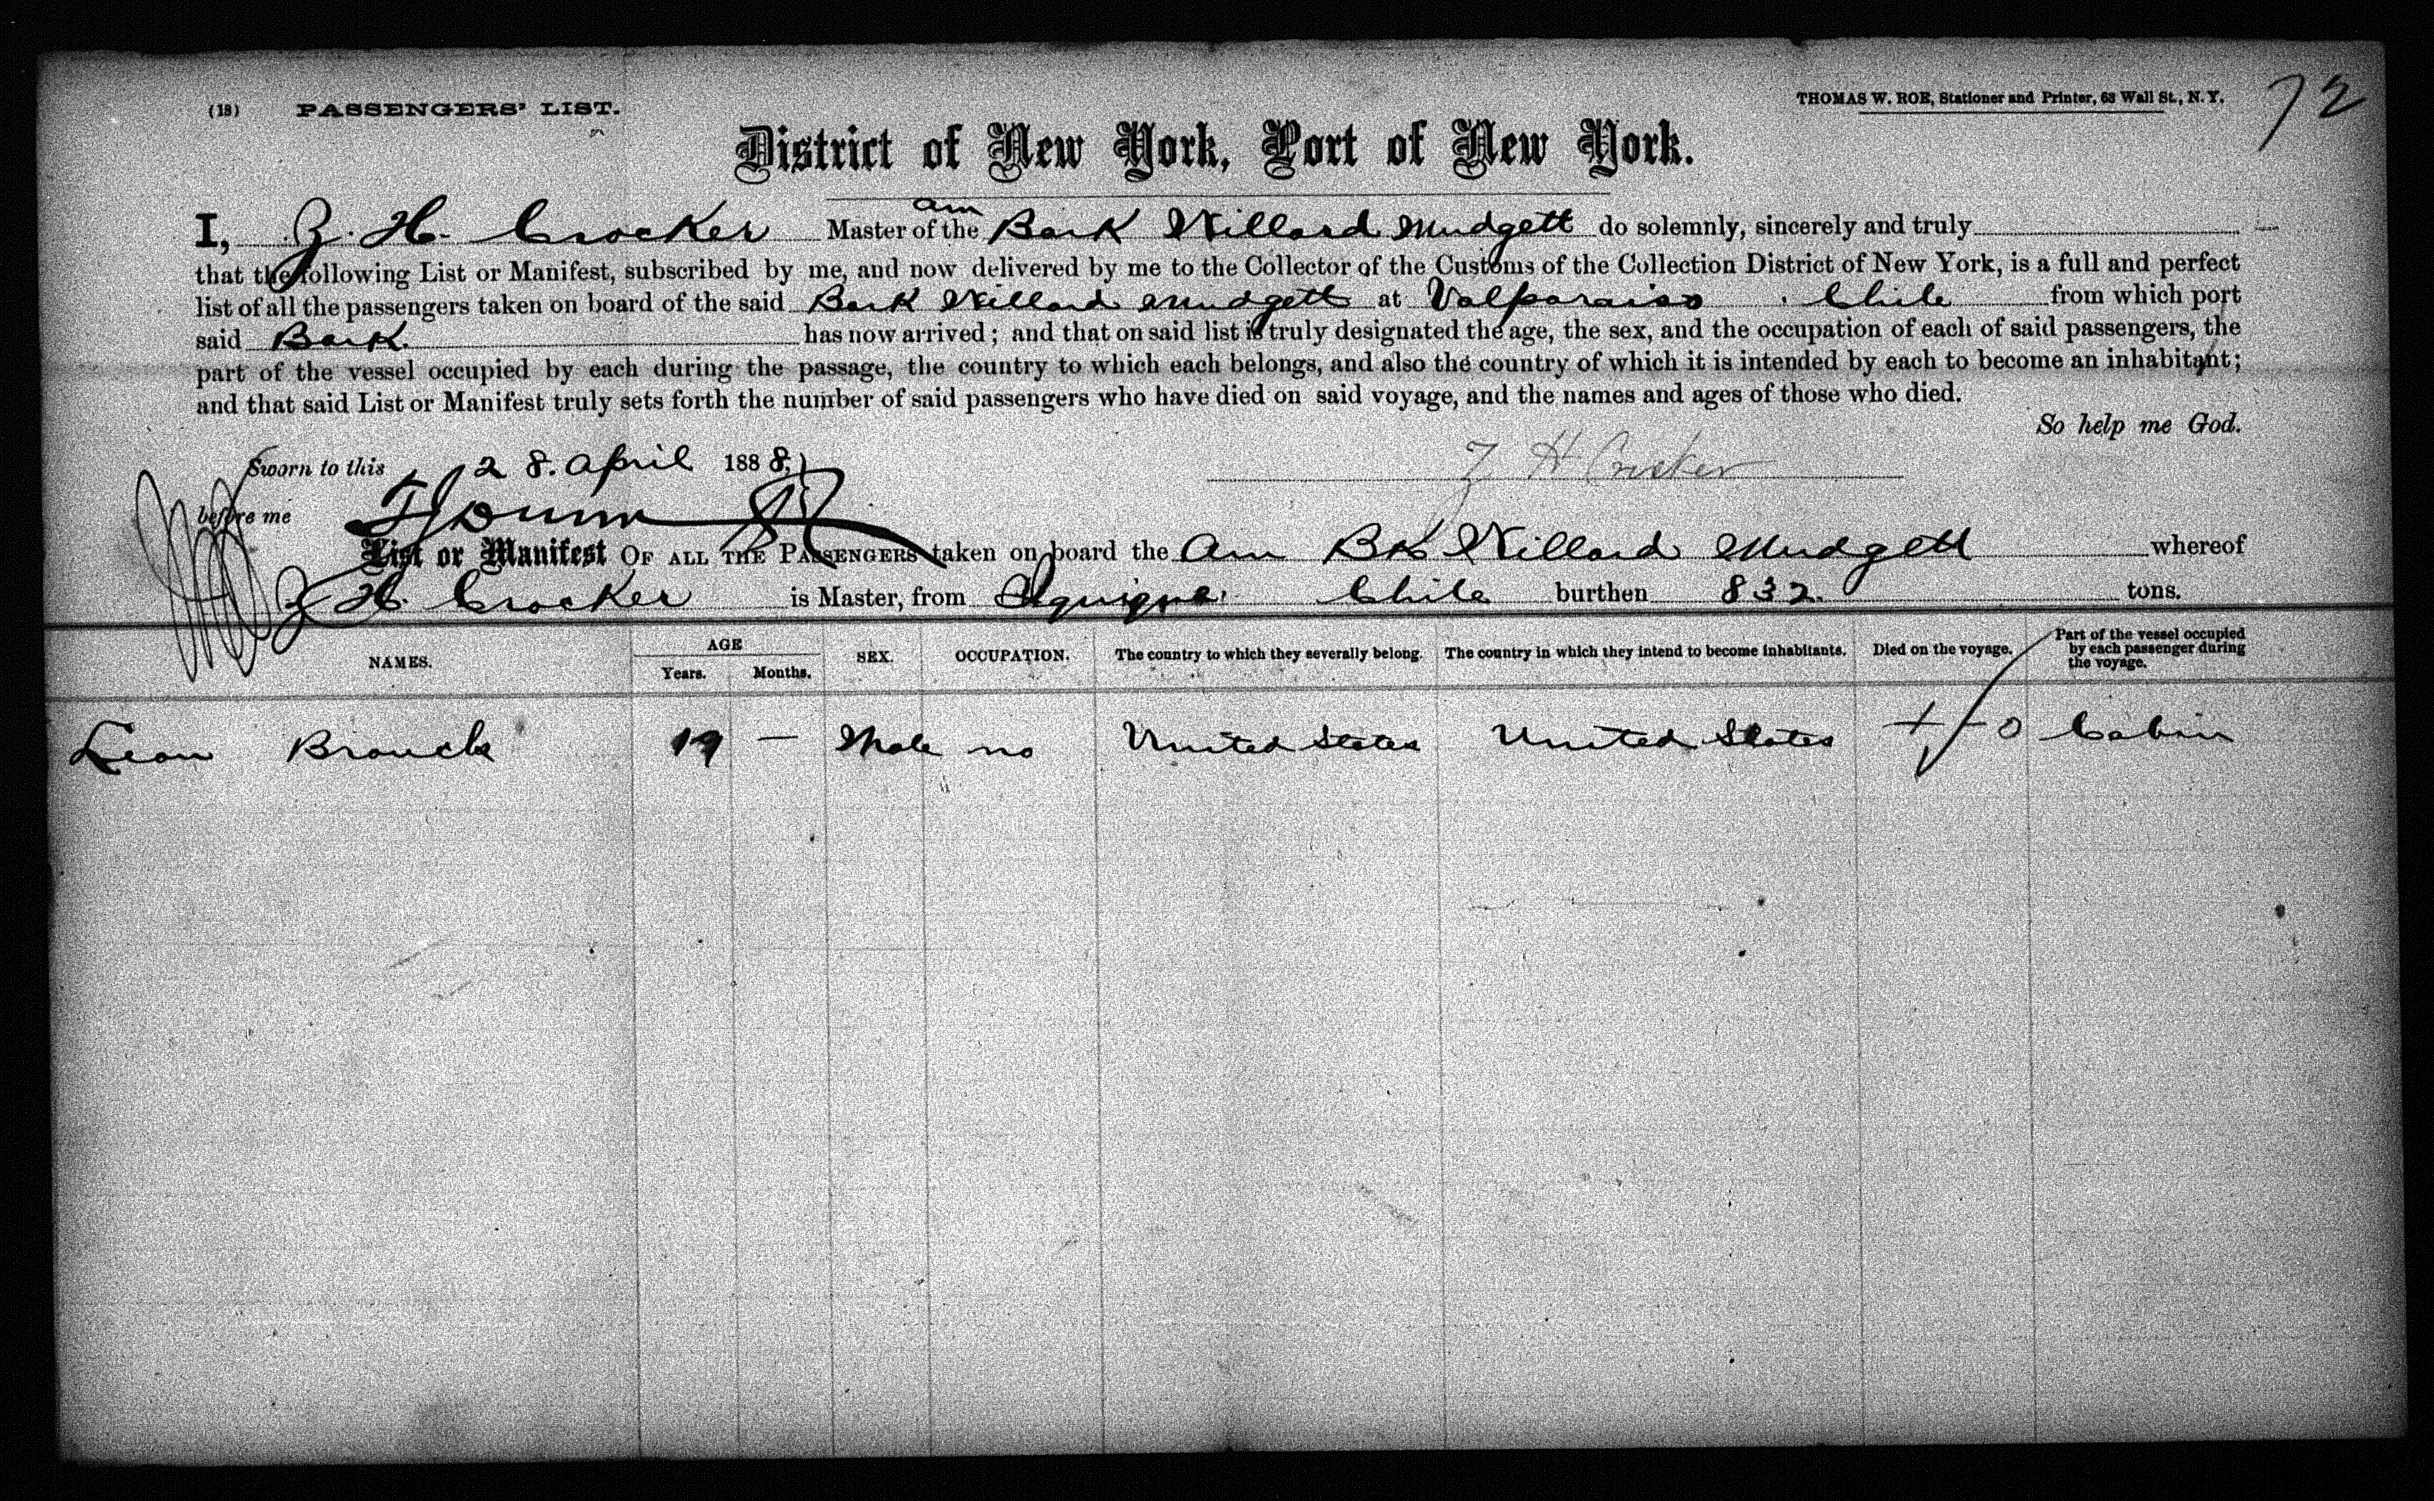 (18) PASSENGERS' LIST.
THOMAS W. ROE, Stationer and Printer, 63 Wall St., N. Y.
72
District of New York, Port of New York.
I, Z. H. Crocker Master of the am Bark Willard Mudgett do solemnly, sincerely and truly
that the following List or Manifest, subscribed by me, and now delivered by me to the Collector of the Customs of the Collection District of New York, is a full and perfect
list of all the passengers taken on board of the said Bark Willard Mudgett at Valparaiso Chile from which port
said Bark. has now arrived; and that on said list is truly designated the age, the sex, and the occupation of each of said passengers, the
part of the vessel occupied by each during the passage, the country to which each belongs, and also the country of which it is intended by each to become an inhabitant;
and that said List or Manifest truly sets forth the number of said passengers who have died on said voyage, and the names and ages of those who died.
So help me God.
Sworn to this 28. April 1888.
Z H Crocker
before me
List or Manifest OF ALL THE PASSENGERS taken on board the Am Bk Willard Mudgett whereof
Z H. Crocker is Master, from Iquique, Chile burthen 832. tons.
NAMES. AGE Years. Months. SEX. OCCUPATION. The country to which they severally belong. The country in which they intend to become inhabitants. Died on the voyage. Part of the vessel occupied by each passenger during the voyage.
Leon 19 — Male no United States United States Cabin